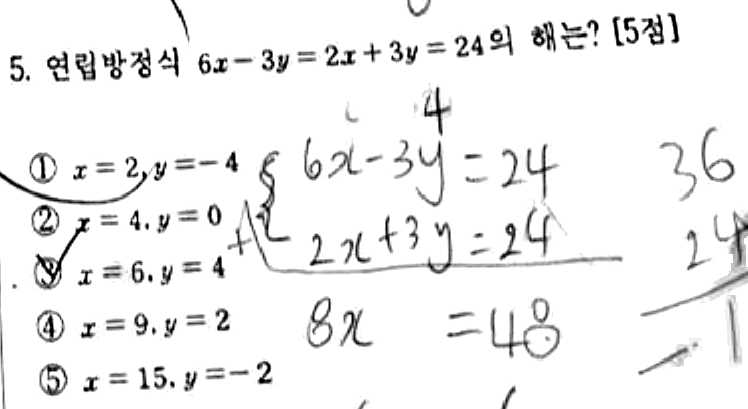 5. 연립방정식 6x - 3y = 2x + 3y = 24의 해는? [5점]
① x = 2, y = -4
② x = 4, y = 0
③ x = 6, y = 4
④ x = 9, y = 2
⑤ x = 15, y = -2
4
6x - 3y = 24
+ 2x + 3y = 24
8x = 48
36
24